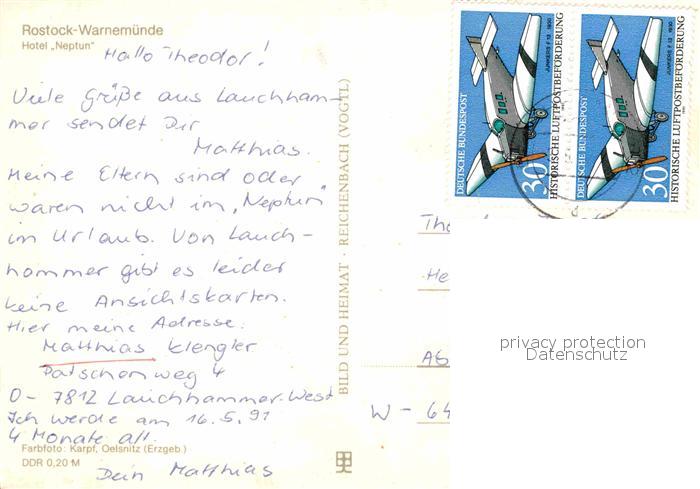 Rostock-Warnemünde
Hotel „Neptun"
Hallo Theodor!
Viele Grüße aus Lauchham-
mer sendet Dir
Matthias.
Meine Eltern sind oder
waren nicht im „Neptun"
im Urlaub. Von Lauch-
hammer gibt es leider
keine Ansichtskarten.
Hier meine Adresse:
Matthias Klengler
Patschenweg 4
O- 7812 Lauchhammer-West
Ich werde am 16.5.91
4 Monate alt.
Dein Matthias
Farbfoto: Karpf, Oelsnitz (Erzgeb.)
DDR 0,20 M
BILD UND HEIMAT · REICHENBACH (VOGTL)
DEUTSCHE BUNDESPOST
30
JUNKERS F 13 1930
HISTORISCHE LUFTPOSTBEFÖRDERUNG
DEUTSCHE BUNDESPOST
30
JUNKERS F 13 1930
HISTORISCHE LUFTPOSTBEFÖRDERUNG
Th
He
Ab
W - 64
privacy protection
Datenschutz